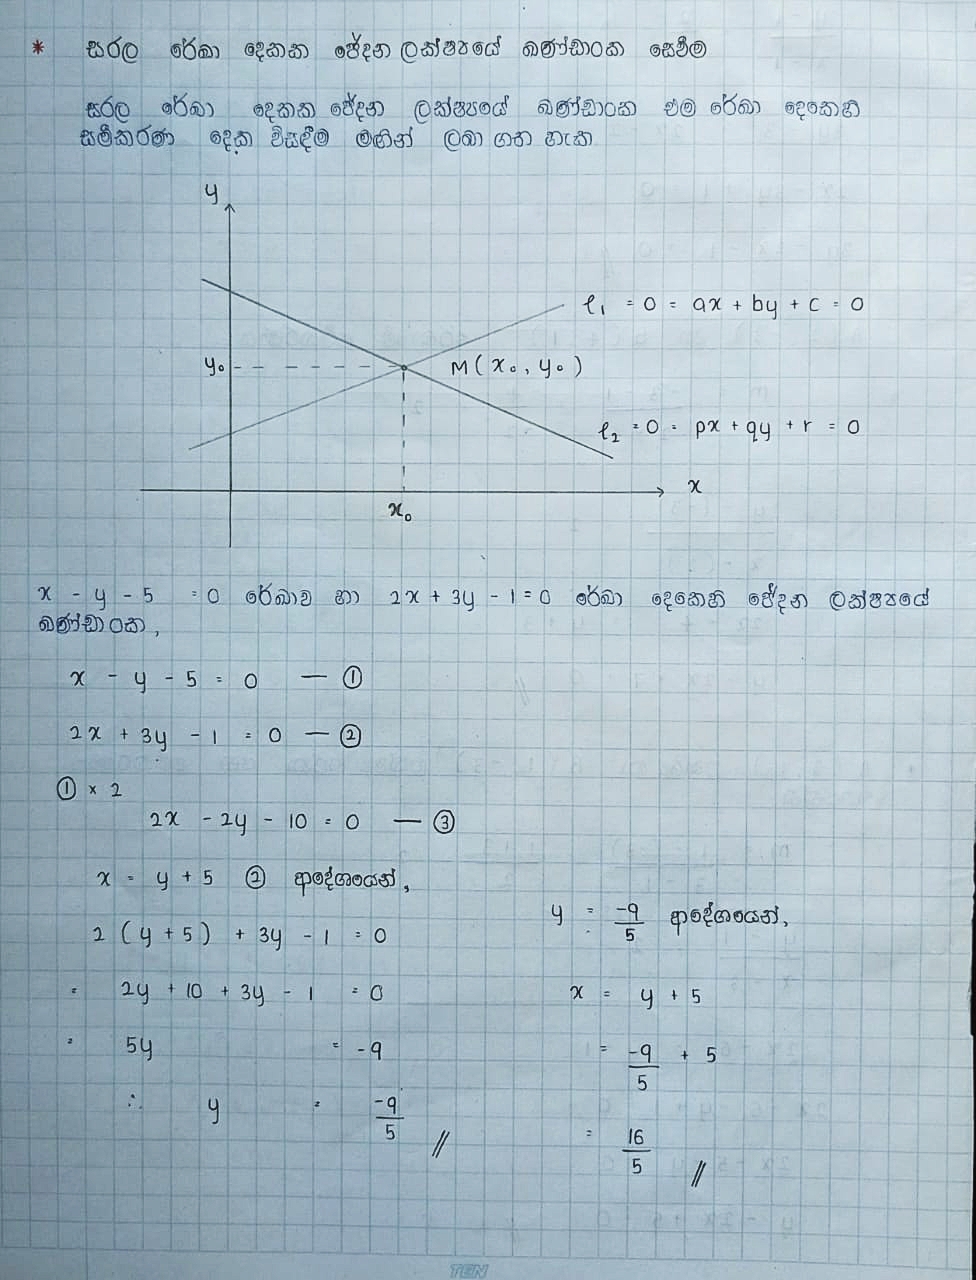 * සරල රේඛා දෙකක ඡේදන ලක්ෂ්‍යයේ ඛණ්ඩාංක සෙවීම
සරල රේඛා දෙකක ඡේදන ලක්ෂ්‍යයේ ඛණ්ඩාංක එම රේඛා දෙකෙහි
සමීකරණ දෙක විසඳීම මඟින් ලබා ගත හැක
y
l₁ = 0 = ax + by + c = 0
y₀
M ( x₀ , y₀ )
l₂ = 0 = px + qy + r = 0
x
x₀
x - y - 5 = 0 රේඛාව හා 2x + 3y - 1 = 0 රේඛා දෙකෙහි ඡේදන ලක්ෂ්‍යයේ
ඛණ්ඩාංක ,
x - y - 5 = 0 — ①
2x + 3y - 1 = 0 — ②
① × 2
2x - 2y - 10 = 0 — ③
x = y + 5 ② ආදේශයෙන් ,
2 ( y + 5 ) + 3y - 1 = 0
= 2y + 10 + 3y - 1 = 0
= 5y = -9
∴ y = -9/5 //
y = -9/5 ආදේශයෙන්,
x = y + 5
= -9/5 + 5
= 16/5 //
TEN